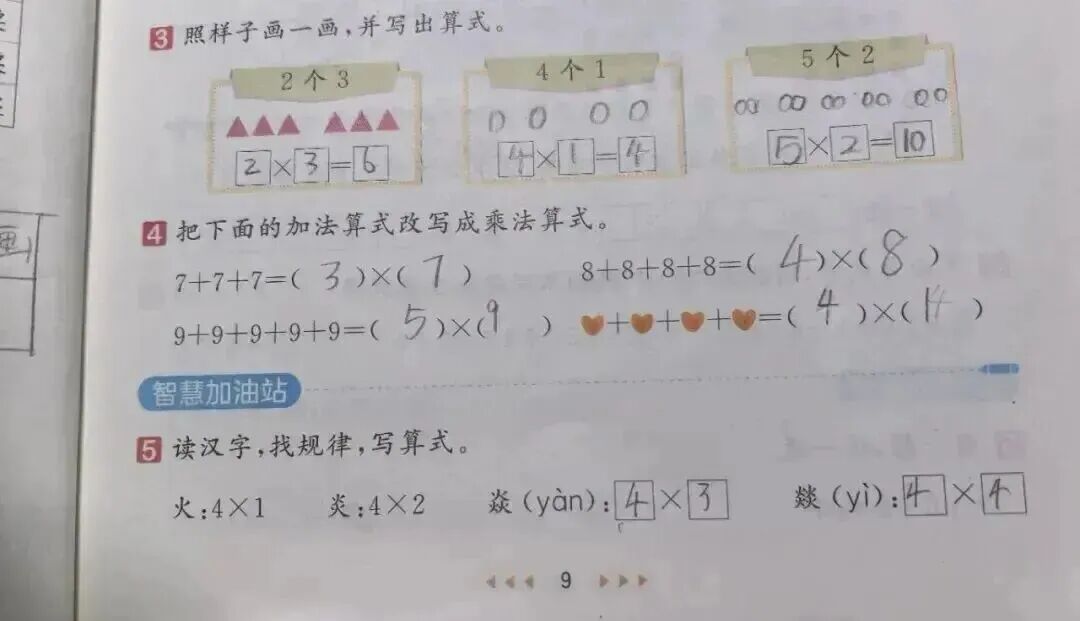 3 照样子画一画,并写出算式。
2个3
4个1
5个2
2×3=6
4×1=4
5×2=10
4 把下面的加法算式改写成乘法算式。
7+7+7=( 3 )×( 7 )
8+8+8+8=( 4 )×( 8 )
9+9+9+9+9=( 5 )×( 9 )
+ + + =( 4 )×( )
智慧加油站
5 读汉字,找规律,写算式。
火:4×1 炎:4×2 焱(yàn):4×3 燚(yì):4×4
9
画